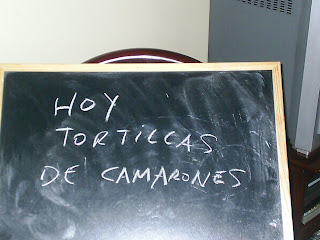 HOY
TORTILLAS
DE CAMARONES